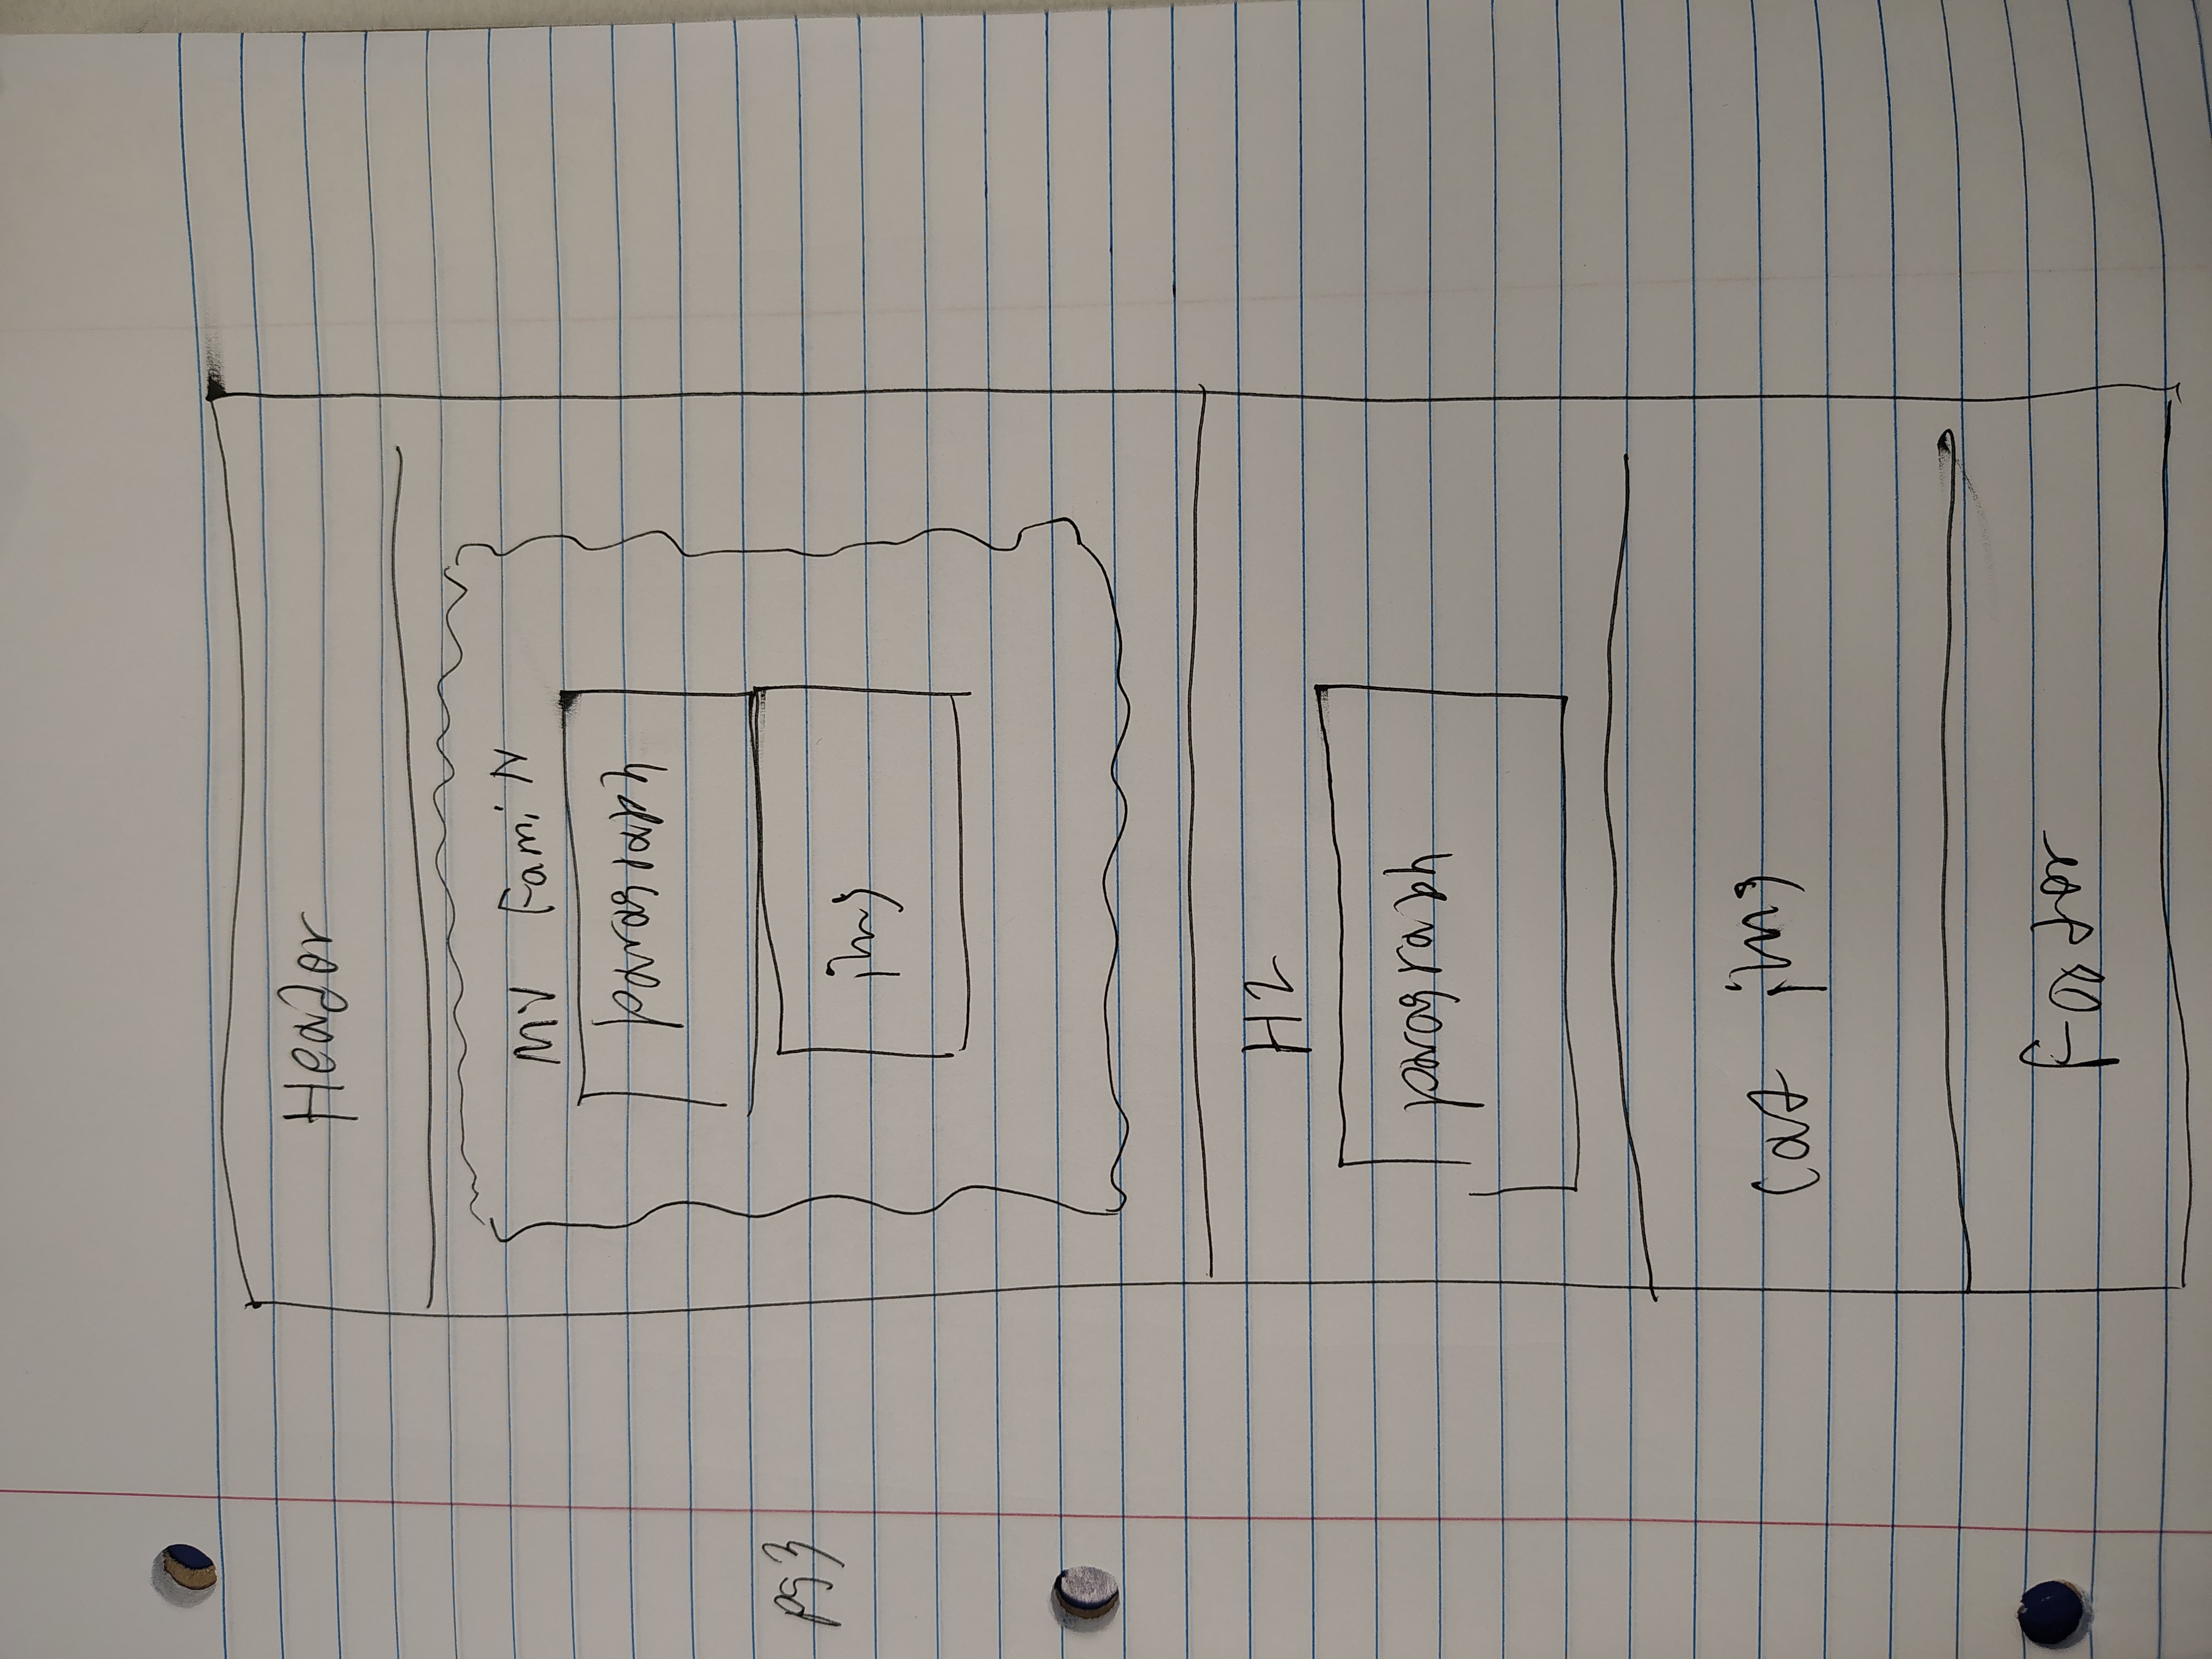 Header
My Family
paragraph
img
pg3
H2
paragraph
Cat img
Footer